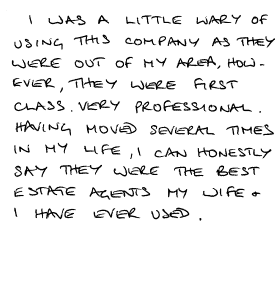 I WAS A LITTLE WARY OF
USING THIS COMPANY AS THEY
WERE OUT OF MY AREA, HOW-
EVER, THEY WERE FIRST
CLASS. VERY PROFESSIONAL.
HAVING MOVED SEVERAL TIMES
IN MY LIFE, I CAN HONESTLY
SAY THEY WERE THE BEST
ESTATE AGENTS MY WIFE &
I HAVE EVER USED.